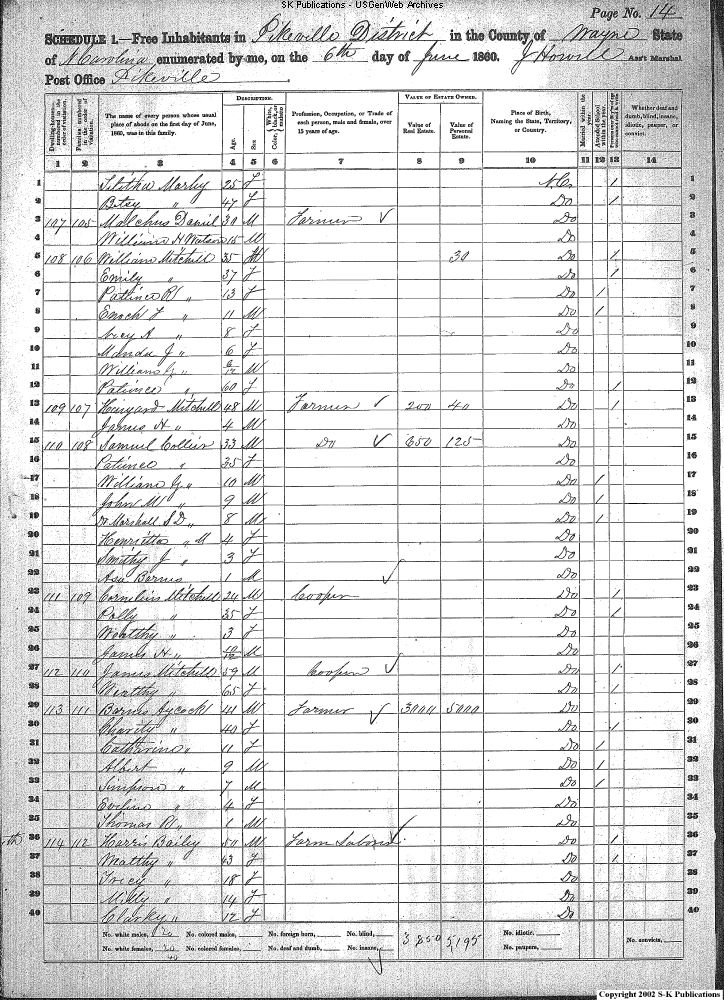 SK Publications - USGenWeb Archives
Page No. 14
SCHEDULE 1.—Free Inhabitants in Pikeville District in the County of Wayne State
of N Carolina enumerated by me, on the 6th day of June 1860. J Howell Ass't Marshal
Post Office Pikeville
Dwelling-houses—numbered in the order of visitation.
Families numbered in the order of visitation.
The name of every person whose usual place of abode on the first day of June, 1860, was in this family.
DESCRIPTION.
Age.
Sex
Color, White, black, or mulatto
Profession, Occupation, or Trade of each person, male and female, over 15 years of age.
VALUE OF ESTATE OWNED.
Value of Real Estate.
Value of Personal Estate.
Place of Birth, Naming the State, Territory, or Country.
Married within the year.
Attended School within the year.
Whether deaf and dumb, blind, insane, idiotic, pauper, or convict.
1 2 3 4 5 6 7 8 9 10 11 12 13 14
1 25 f N.C. / 1
2 Betsy " 47 f Do / 2
3 107 105 Malchus Daniel 30 M Farmer ✓ Do 3
4 William H Watson 15 M Do 4
5 108 106 William Mitchell 35 M 30 Do / 5
6 Emily " 37 f Do / 6
7 Patience R " 13 f Do / 7
8 Enoch F " 11 M Do / 8
9 A " 8 f Do 9
10 Manda J " 6 f Do 10
11 William G " 6/12 M Do 11
12 Patience " 60 f Do / 12
13 109 107 Mitchell 48 M Farmer ✓ 200 40 Do / 13
14 James H " 4 M Do 14
15 110 108 Samuel Collier 33 M Do ✓ 650 125 Do 15
16 Patience " 35 f Do 16
17 William G " 10 M Do / 17
18 John W " 9 M Do / 18
19 Marshall S D " 8 M Do / 19
20 Henrietta " M 4 f Do 20
21 Smithy J " 3 f Do 21
22 Asa Barnes 1 M ✓ Do 22
23 111 109 Cornelius Mitchell 24 M Cooper Do / 23
24 Polly " 35 f Do / 24
25 Wealthy " 3 f Do 25
26 James H " 10/12 M Do 26
27 112 110 James Mitchell 59 M Cooper ✓ Do / 27
28 Wealthy " 65 f Do / 28
29 113 111 Barnes Aycock 41 M Farmer ✓ 3000 5000 Do 29
30 Charity " 40 f Do / 30
31 Catharine " 11 f Do / 31
32 Albert " 9 M Do / 32
33 Simpson " 7 M Do / 33
34 Eveline " 4 f Do 34
35 Thomas R " 1 M Do 35
36 114 112 Harris Bailey 50 M Farm Laborer ✓ Do / 36
37 43 f Do / 37
38 " 18 f Do 38
39 Milly " 14 f Do 39
40 " 12 f Do 40
No. white males, No. colored males, No. foreign born, No. blind, 3850 5,195 No. idiotic, No. convicts,
No. white females, 20 No. colored females, No. deaf and dumb, No. insane, No. paupers,
40
Copyright 2002 S-K Publications